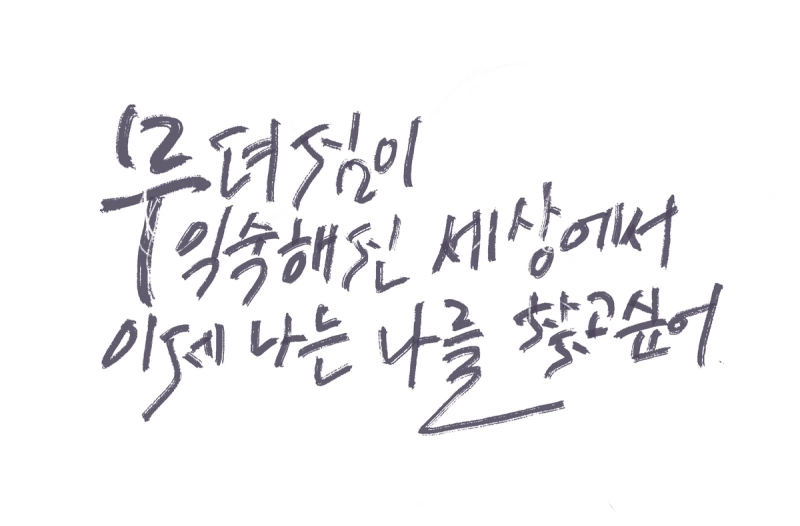 무뎌짐이
익숙해진 세상에서
이제 나는 나를 찾고싶어